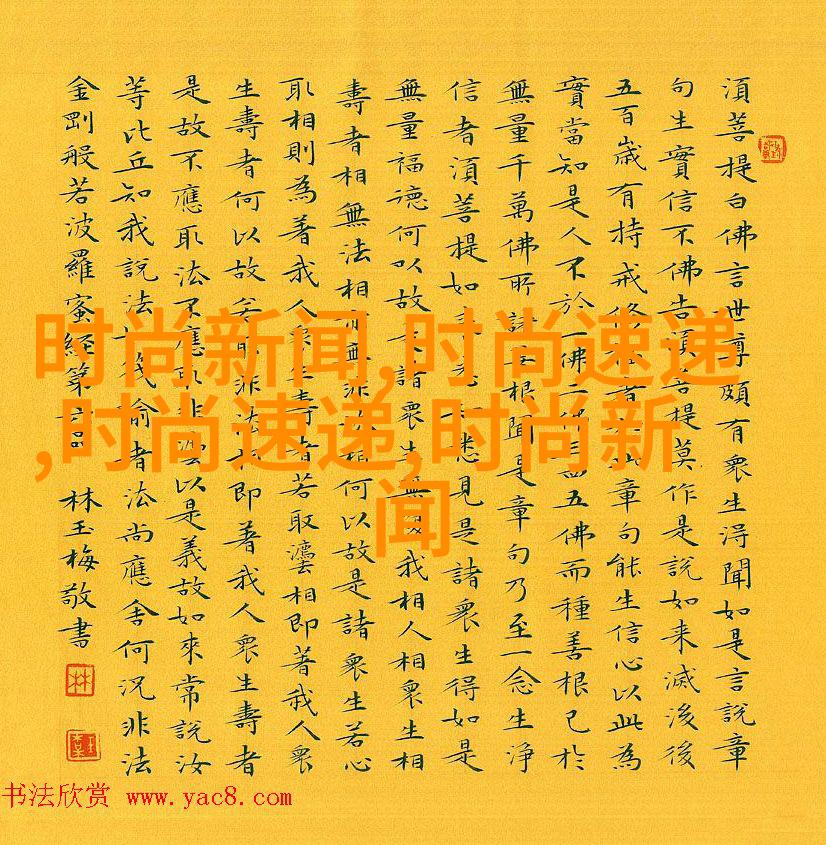 須菩提白佛言世尊頗有衆生淂聞如是言說章
句生實信不佛告須菩提莫作是說如来滅後後
五百歲有持戒修者此章句能生信心以此為
實當知是人不於一佛二佛五佛而種善根已於
無量千萬佛所諸根聞是章句乃至一念生淨
信者須菩提如悉悉見是諸衆生得如是
無量福德何以故諸衆生無我相人相衆生相
壽者相無法相無非相何以故是諸衆生若心
取相則為著我人衆生壽者若取灋相即著我人衆
生壽者何以故若非法即著我人衆生壽者
是故不應取法不應非灋以是義故如來常說汝
等比丘知我說法筏喻者法尚應舍何況非法
金剛般若波羅蜜経第六品
林玉梅敬書
林
时尚新闻,时尚速递
,时尚速递,时尚新
闻
书法欣赏 www.yac8.com